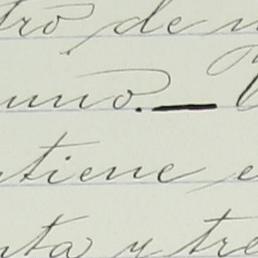 tro de n
uno.—
tiene e
nta y tre